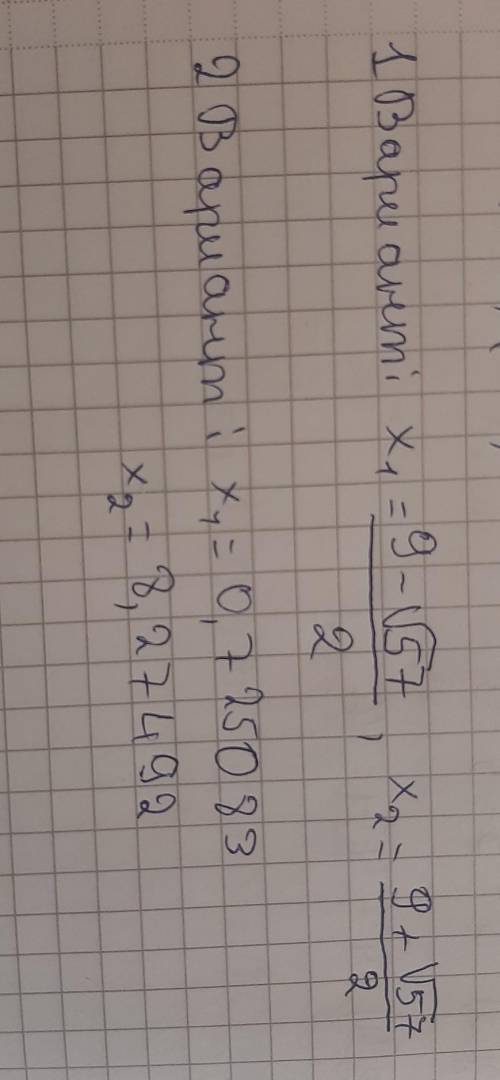 1 Вариант: x₁ = (9 − √57)/2, x₂ = (9 + √57)/2
2 Вариант: x₁ = 0,725083
x₂ = 8,27492